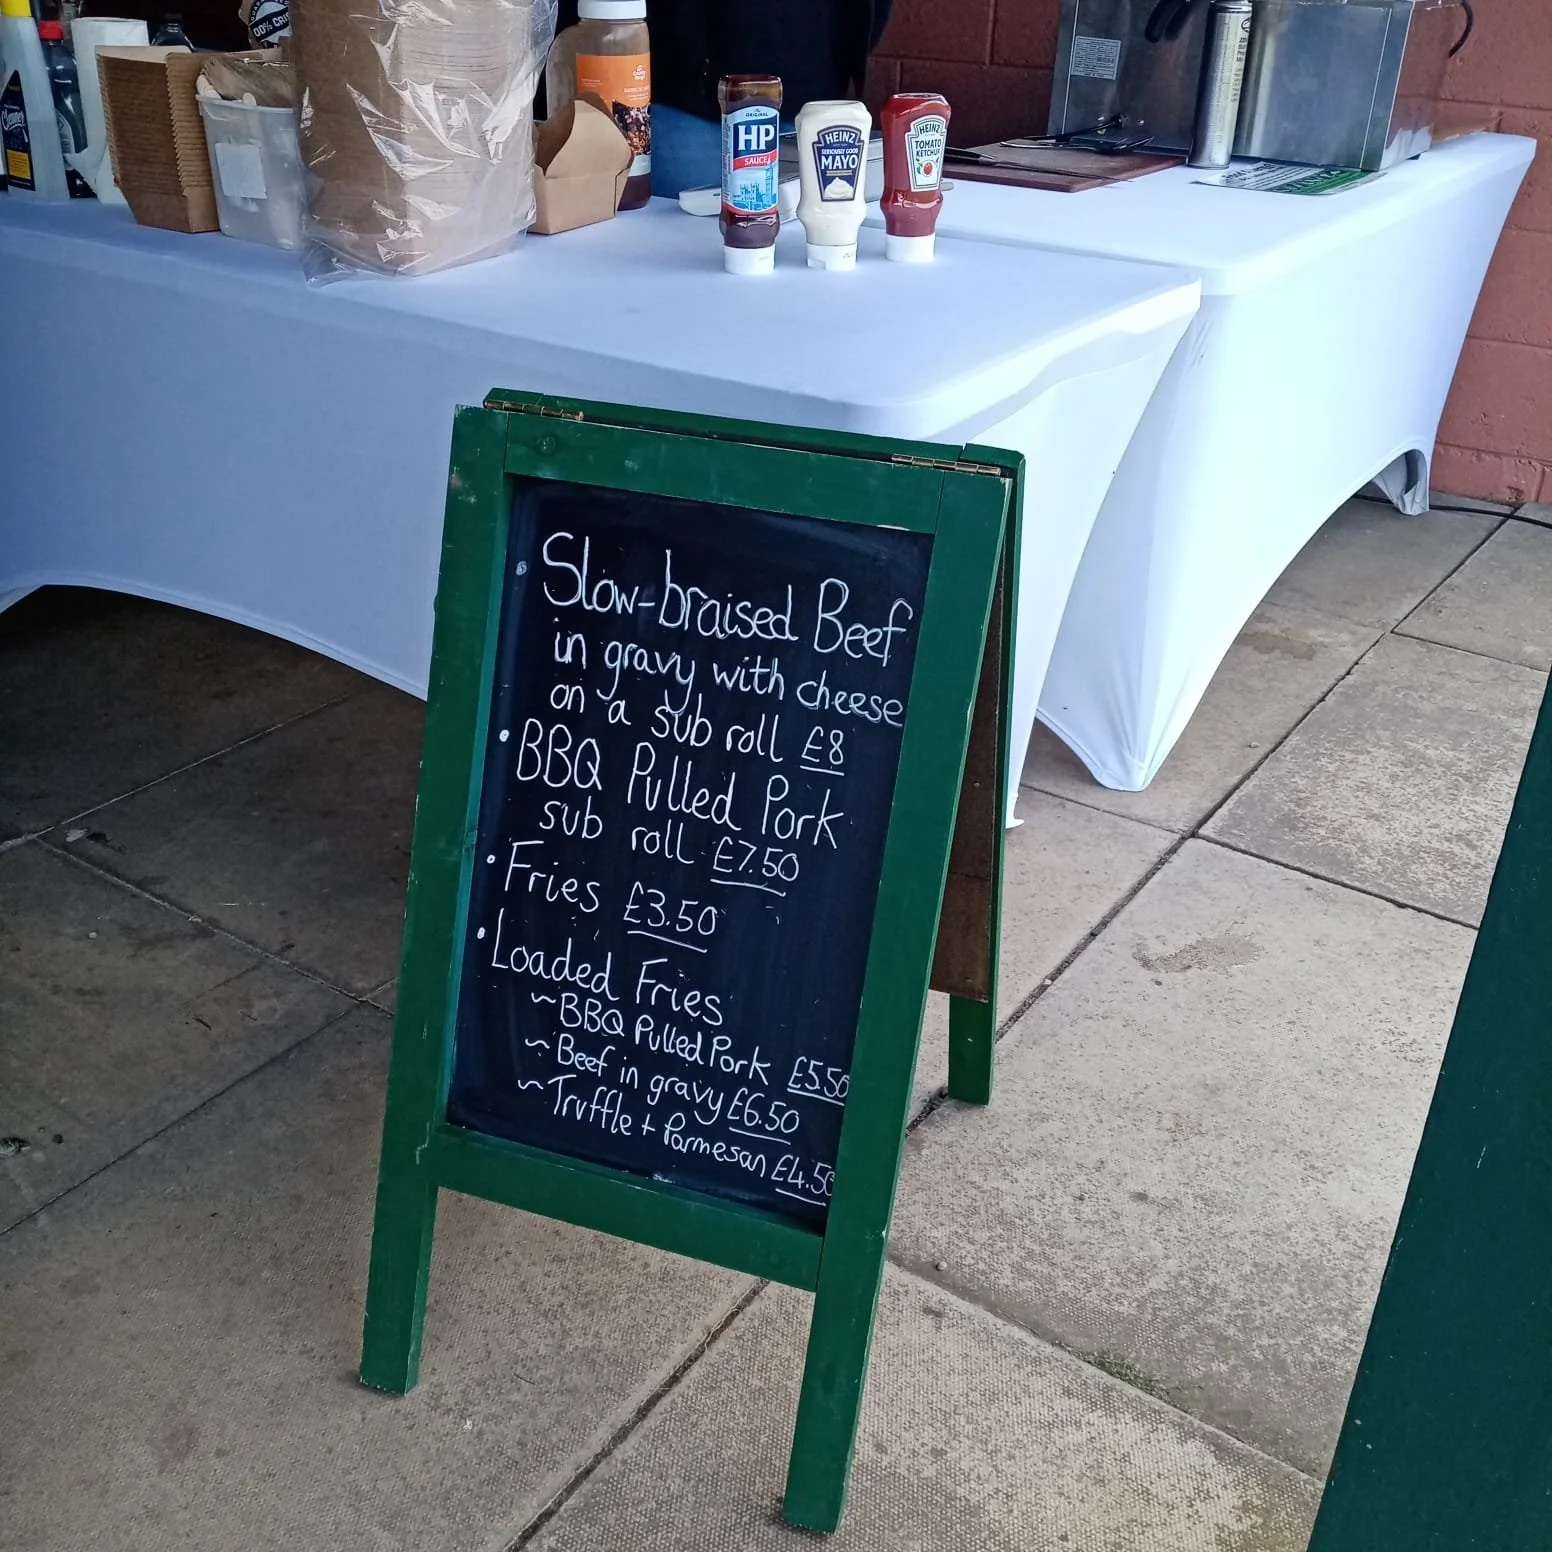 00% CRIS
ORIGINAL
HP
SAUCE
HEINZ
SERIOUSLY GOOD
MAYO
HEINZ
TOMATO
KETCHUP
• Slow-braised Beef
in gravy with cheese
on a sub roll £8
• BBQ Pulled Pork
sub roll £7.50
• Fries £3.50
• Loaded Fries
~ BBQ Pulled Pork £5.50
~ Beef in gravy £6.50
~ Truffle + Parmesan £4.50